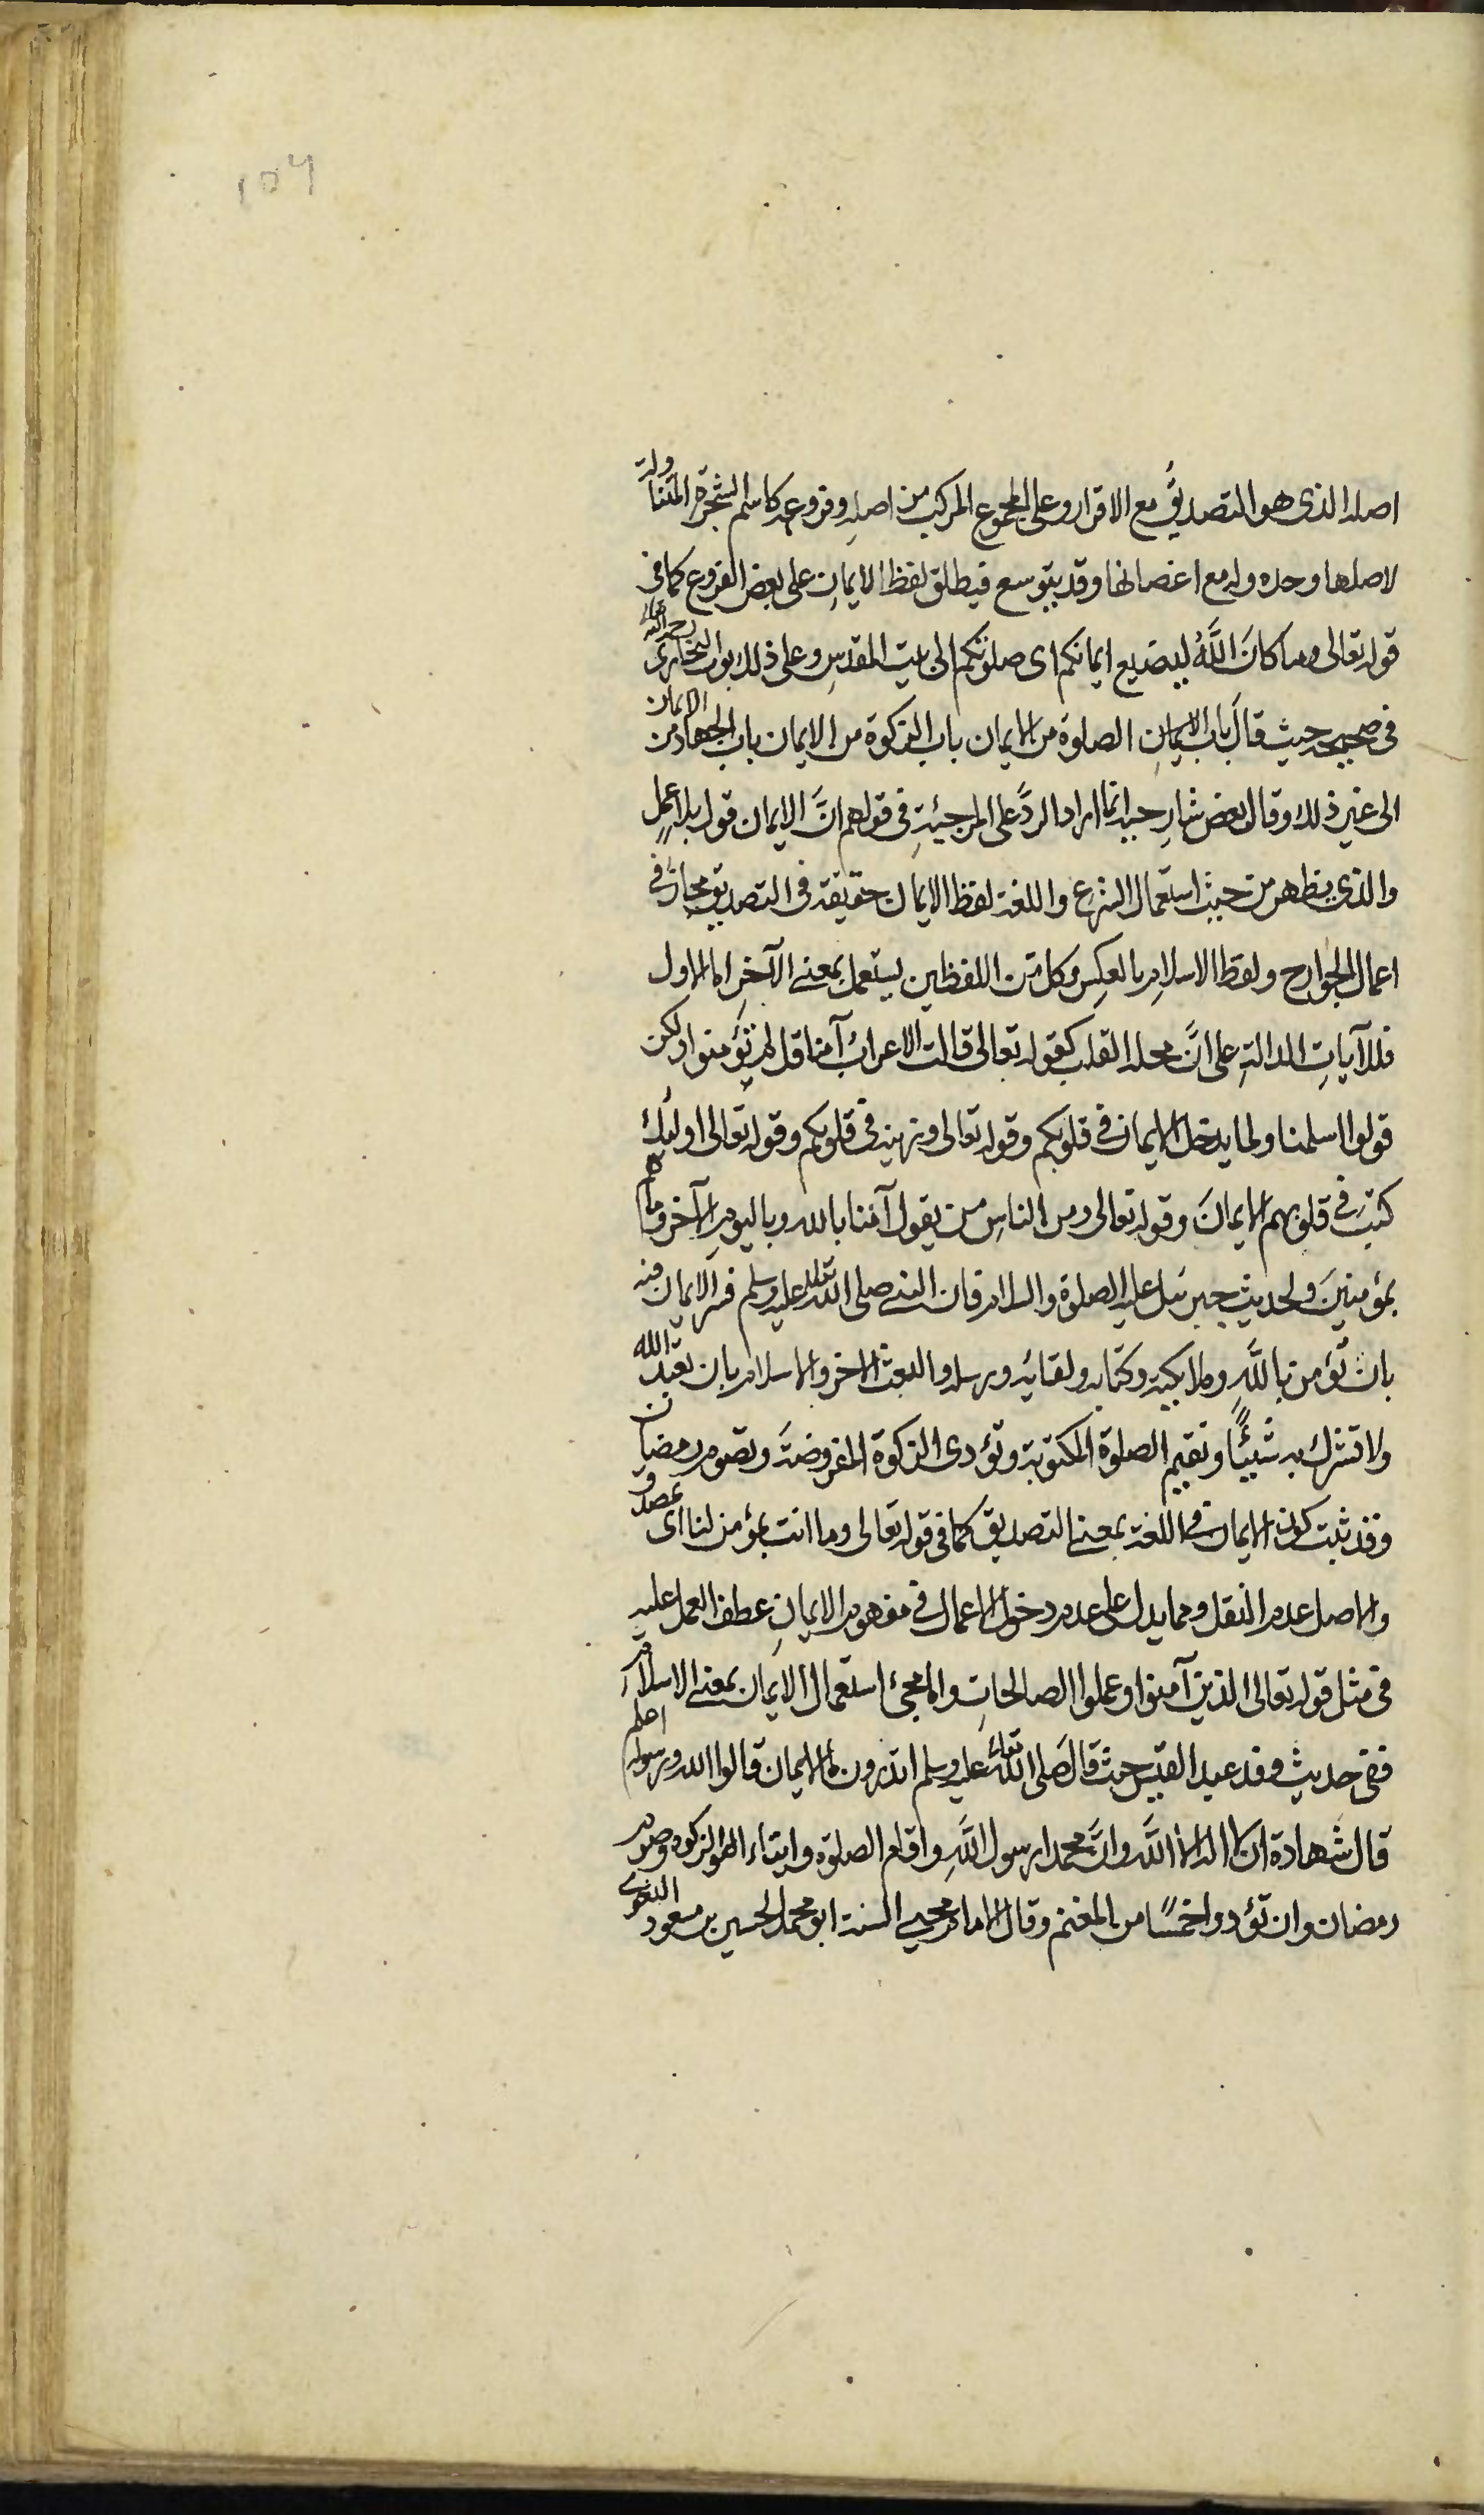 ١٥٦
اصله الذى هو التصديقُ مع الاقرار وعلى المجموع المركب من اصلِه وفروعِه كاسم الشجرة المتناولة
لاصلها وحده وله مع اغصانها وقد يتوسع فيطلق لفظ الايمانِ على بعض الفروع كما فى
قوله تعالى وما كانَ اللَّهُ ليضيع ايمانكم اى صلوتكم الى بيت المقدسِ وعلى ذلك بواب البخارى رحمه الله تعالى
فى صحيحه حيث قالَ باب الايمانِ الصلوة من الايمان باب الزكوة من الايمان باب الجهاد من الايمان
الى غير ذلك وقال بعض شارحيه انما اراد الردَّ على المرجئةِ فى قولهم انَّ الايمان قول بلا عملٍ
والذى يظهر من حيث استعمال الشرع واللغة لفظ الايمان حقيقة فى التصديق مجاز فى
اعمال الجوارح ولفظ الاسلام بالعكسِ وكل من اللفظين يستعمل بمعنى الآخرِ اما الاول
فللآياتِ الدالةِ على انَّ محله القلب كقوله تعالى قالت الاعرابُ آمنا قل لم تؤمنوا ولكن
قولوا اسلمنا ولما يدخل الايمان فى قلوبكم وقوله تعالى وزينه فى قلوبكم وقوله تعالى اولئك
كتب فى قلوبهم الايمانَ وقوله تعالى ومن الناسِ من يقول آمنا بالله وباليوم الآخر وما هم
بمؤمنينَ ولحديث جبرئيل عليه الصلوة والسلام فان النبى صلى الله تعالى عليه وسلم فسر الايمان فيه
بان تؤمن باللَّهِ وملائكيته وكتابه ولقائه ورسله والبعث الاخر والاسلام بان تعبد الله
ولا تشرك به شيئًا وتقيم الصلوة المكتوبة وتؤدى الزكوة المفروضةَ وتصوم رمضان
وقد ثبت كون الايمان فى اللغة بمعنى التصديق كما فى قوله تعالى وما انت بمؤمن لنا اى بمصدق
والاصل عدم النقل ومما يدل على عدم دخول الاعمال فى مفهوم الايمانِ عطف العمل عليه
فى مثل قوله تعالى الذين آمنوا وعملوا الصالحاتِ واما مجئ استعمال الايمان بمعنى الاسلام
ففى حديث وفد عبد القيس حيث قال صَلى الله تعالى عليه وسلم اتدرون ما الايمان قالوا الله ورسوله اعلم
قال شهادة ان لا اله الا اللَّه وانَّ محمدا رسول اللَّهِ واقام الصلوة وايتاء الزكوة وصوم
رمضان وان تؤدوا خمسًا من المغنم وقال الامام محيى السنة ابو محمد الحسين بن مسعود البغوى